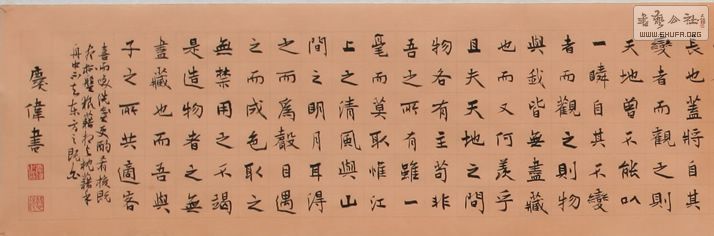 長也蓋將自其
變者而觀之則
天地曾不能以
一瞬自其不變
者而觀之則物
與我皆無盡藏
也而又何羨乎
且夫天地之間
物各有主苟非
吾之所有雖一
毫而莫取惟江
上之清風與山
間之明月耳得
之而為聲目遇
之而成色取之
無禁用之不竭
是造物者之無
盡藏也而吾與
子之所共適客
喜而笑洗盞更酌肴核既
盡杯盤狼藉相与枕藉乎
舟中不知東方之既白
慶偉書
書藝公社
WWW.SHUFA.ORG